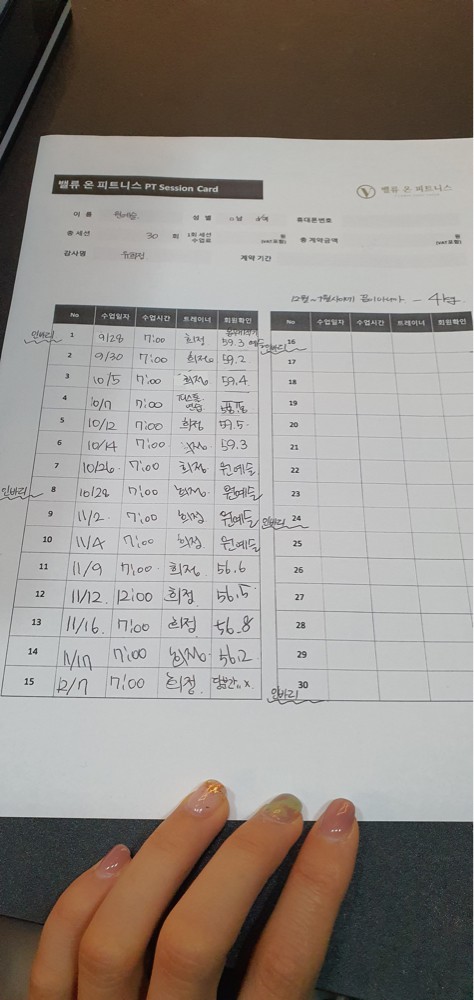 밸류 온 피트니스 PT Session Card
밸류 온 피트니스
이 름 원예슬 성 별 □남 □여 휴대폰번호
총 세션 30 회 1회 세션 수업료 원 (vat포함) 총 계약금액 원 (vat포함)
강사명 계약 기간
4kg
No 수업일자 수업시간 트레이너 회원확인
인바디 1 9/28 7:00 희정 59.3
2 9/30 7:00 희정 59.2
3 10/5 7:00 희정 59.4
4 10/7 7:00
5 10/12 7:00 희정 59.5
6 10/14 7:00 희정 59.3
7 10/26 7:00 희정 원예슬
인바디 8 10/28 7:00 희정 원예슬
9 11/2 7:00 희정 원예슬
10 11/4 7:00 희정 원예슬
11 11/9 7:00 희정 56.6
12 11/12 12:00 희정 56.5
13 11/16 7:00 희정 56.8
14 11/17 7:00 희정 56.2
15 12/7 7:00 희정 x
No 수업일자 수업시간 트레이너 회원확인
인바디 16
17
18
19
20
21
22
23
인바디 24
25
26
27
28
29
인바디 30